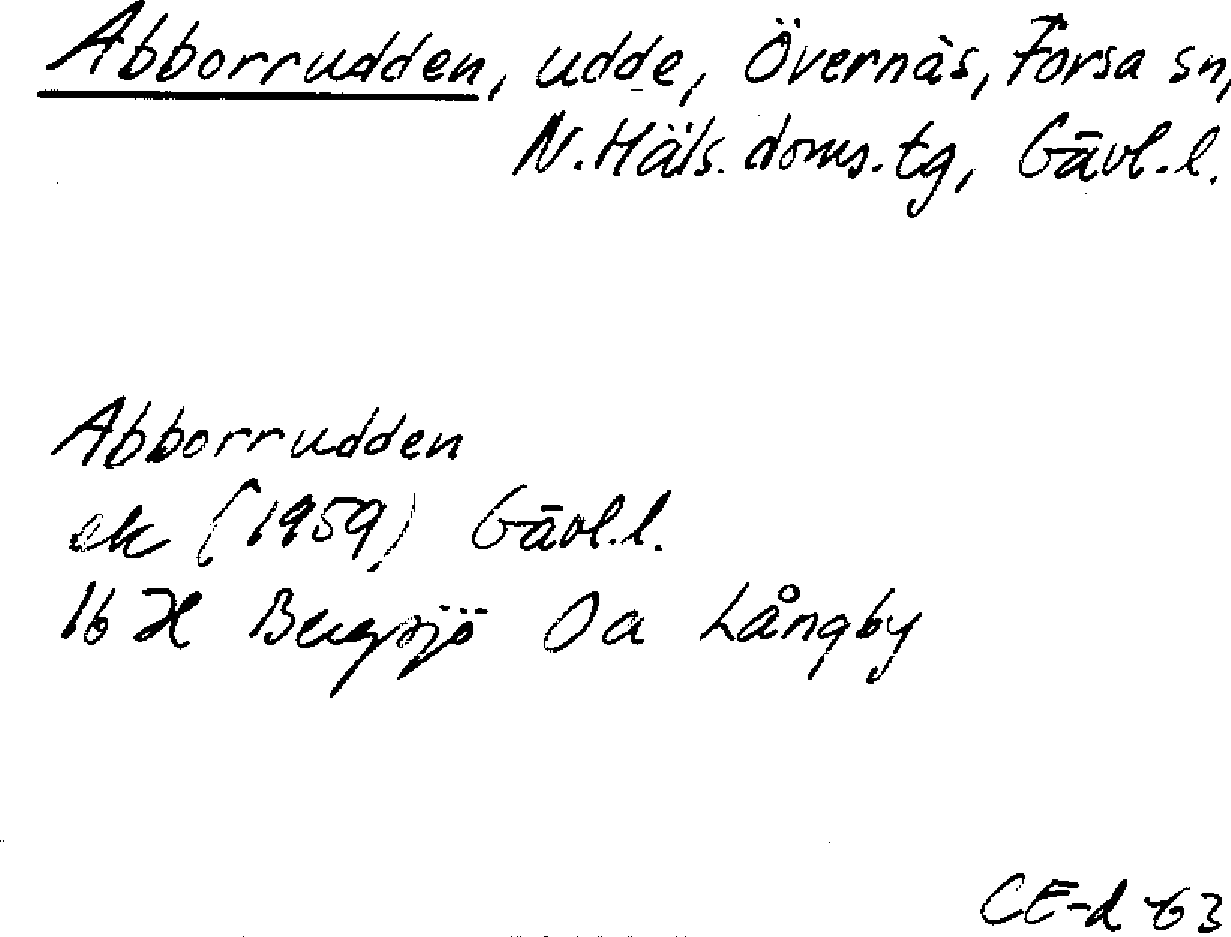 Abborrudden, udde, Övernäs, Forsa sn,
N. Häls. doms. tg, Gävl. l.
Abborrudden
ek (1959) Gävl. l.
16 H Bergsjö 0a Långby
CE-d -63